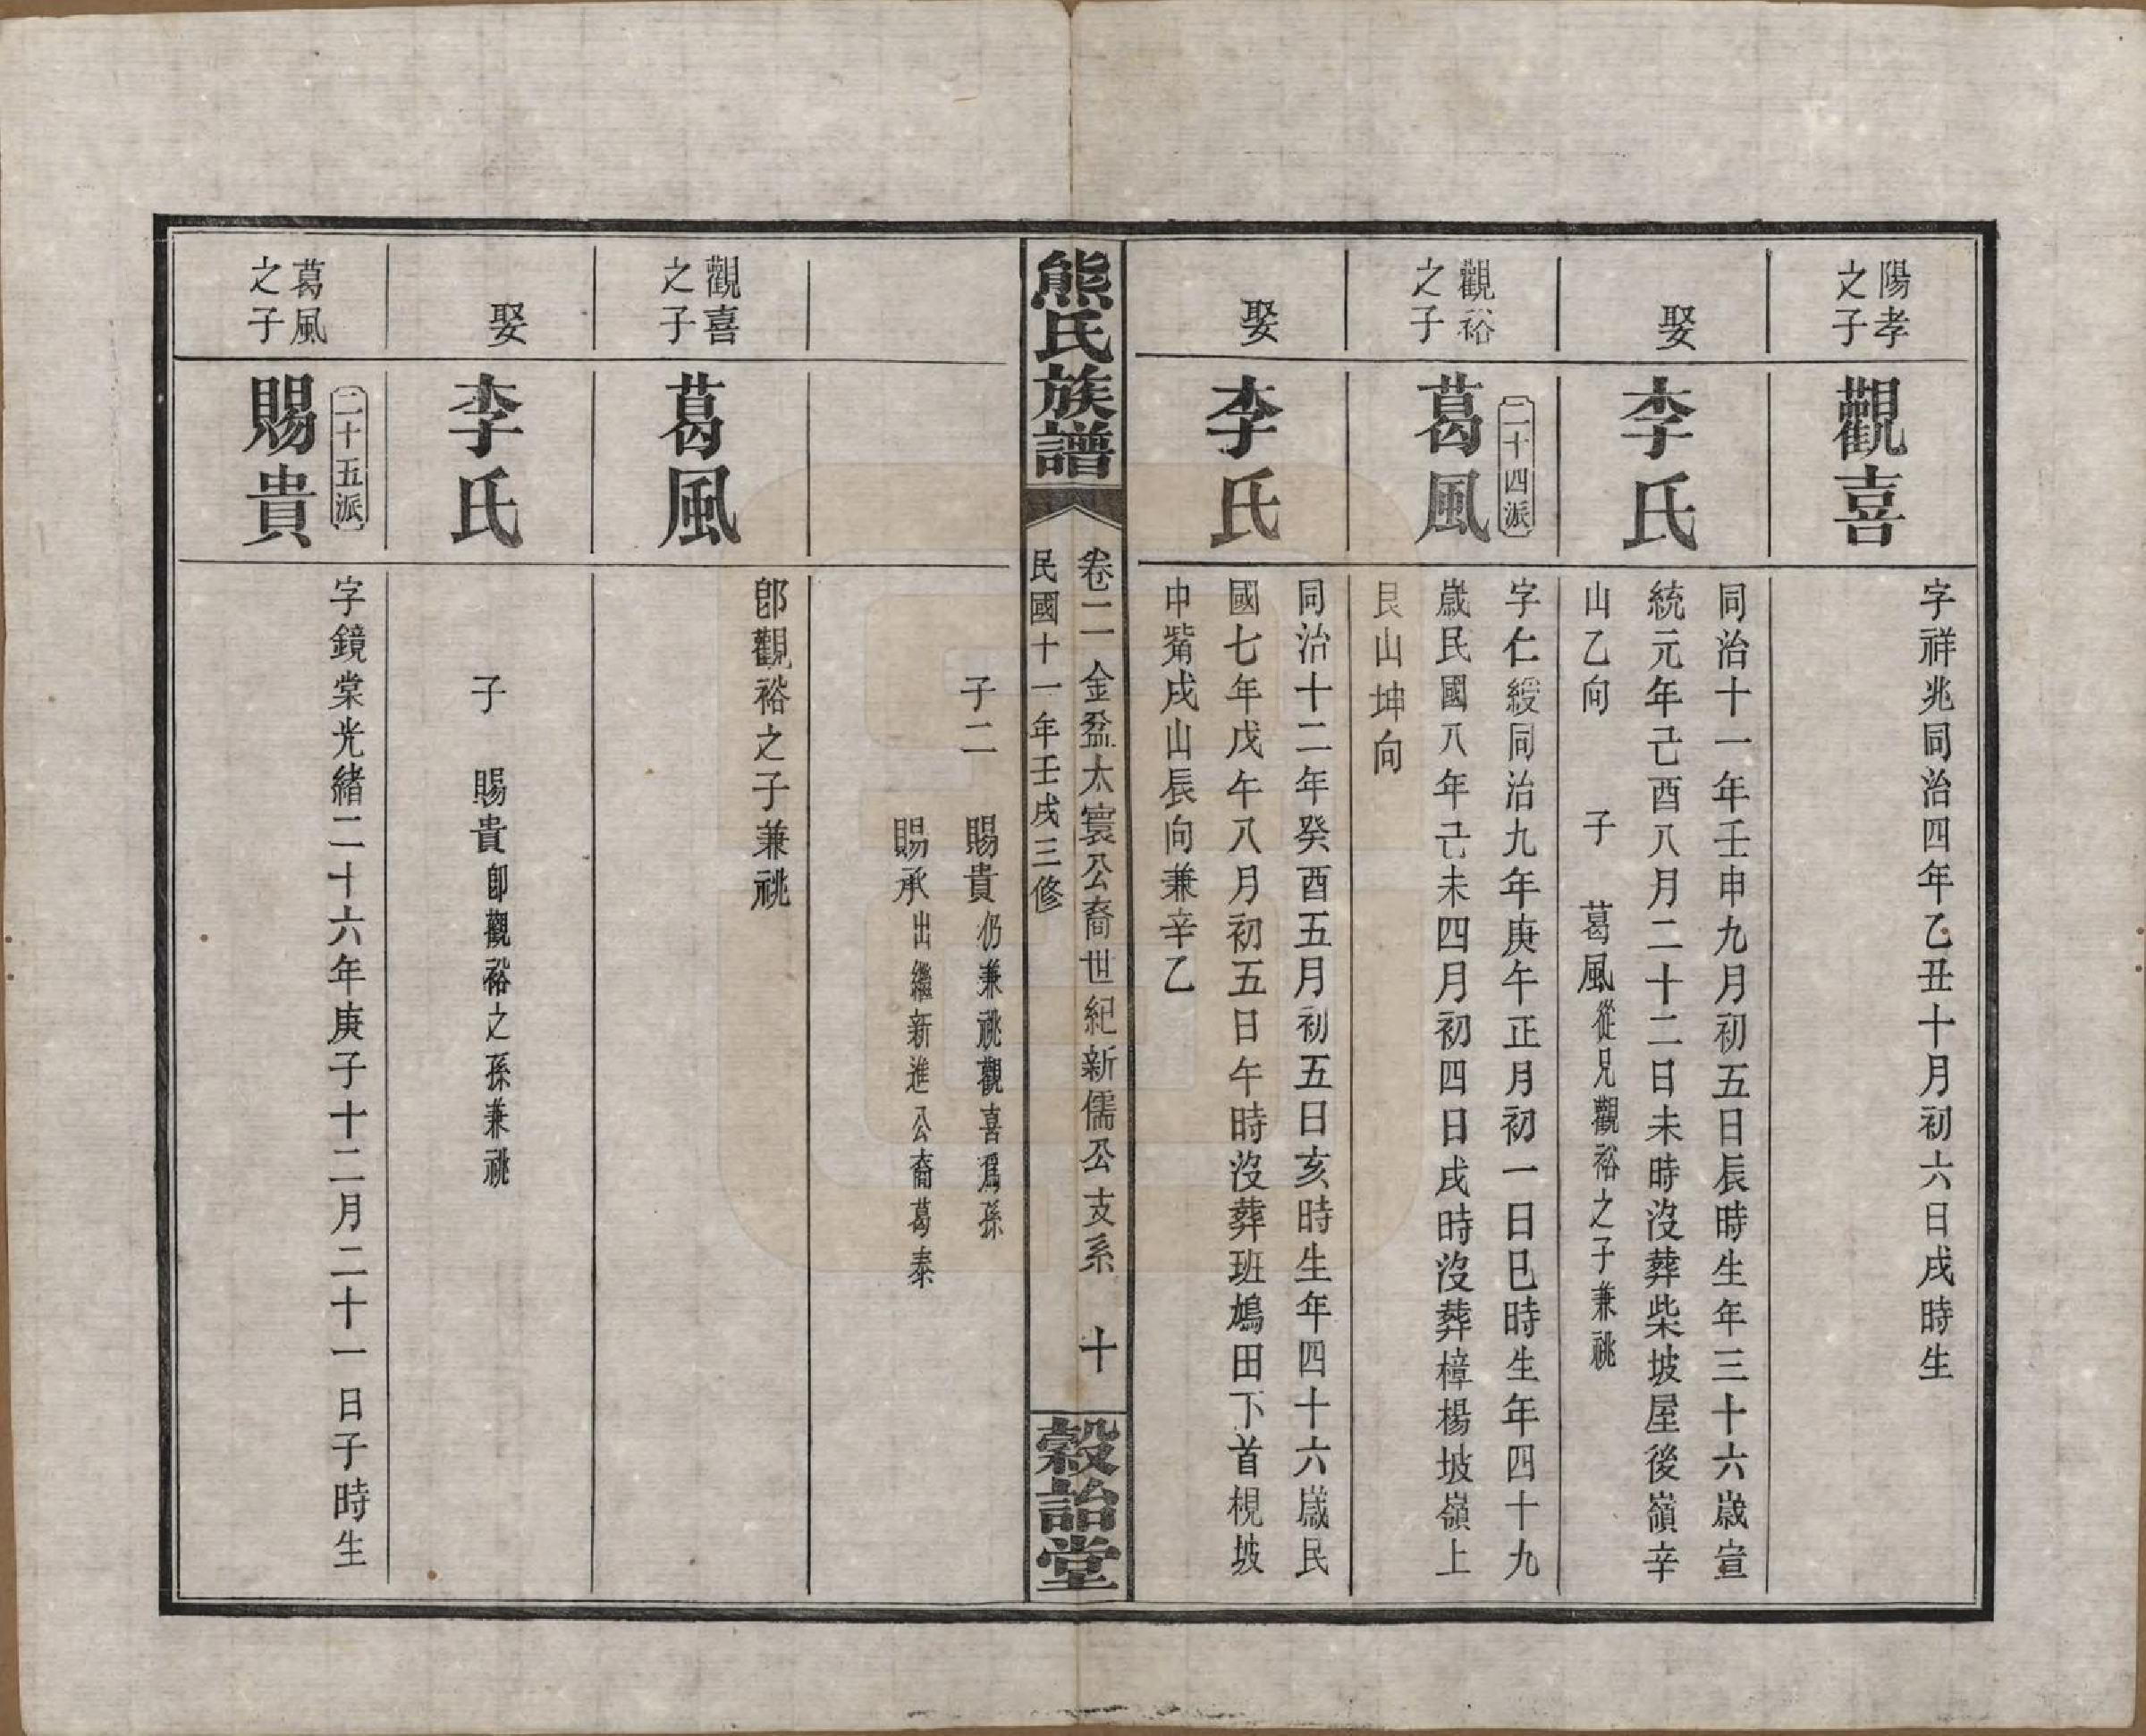 陽孝
之子
觀喜
字祥兆同治四年乙丑十月初六日戌時生
娶
李氏
同治十一年壬申九月初五日辰時生年三十六歲宣
統元年己酉八月二十二日未時沒葬柴坡屋後嶺辛
山乙向 子 葛風從兄觀裕之子兼祧
二十四派
觀裕
之子
葛風
字仁綬同治九年庚午正月初一日巳時生年四十九
歲民國八年己未四月初四日戌時沒葬樟楊坡嶺上
艮山坤向
娶
李氏
同治十二年癸酉五月初五日亥時生年四十六歲民
國七年戊午八月初五日午時沒葬班鳩田下首梘坡
中嘴戌山辰向兼辛乙
熊氏族譜
卷二 金盆太寰公裔世紀新儒公支系 十
民國十一年壬戌三修
穀詒堂
子二 賜貴仍兼祧觀喜爲孫
賜承出繼新進公裔葛泰
觀喜
之子
葛風
卽觀裕之子兼祧
娶
李氏
子 賜貴卽觀裕之孫兼祧
二十五派
葛風
之子
賜貴
字鏡棠光緒二十六年庚子十二月二十一日子時生